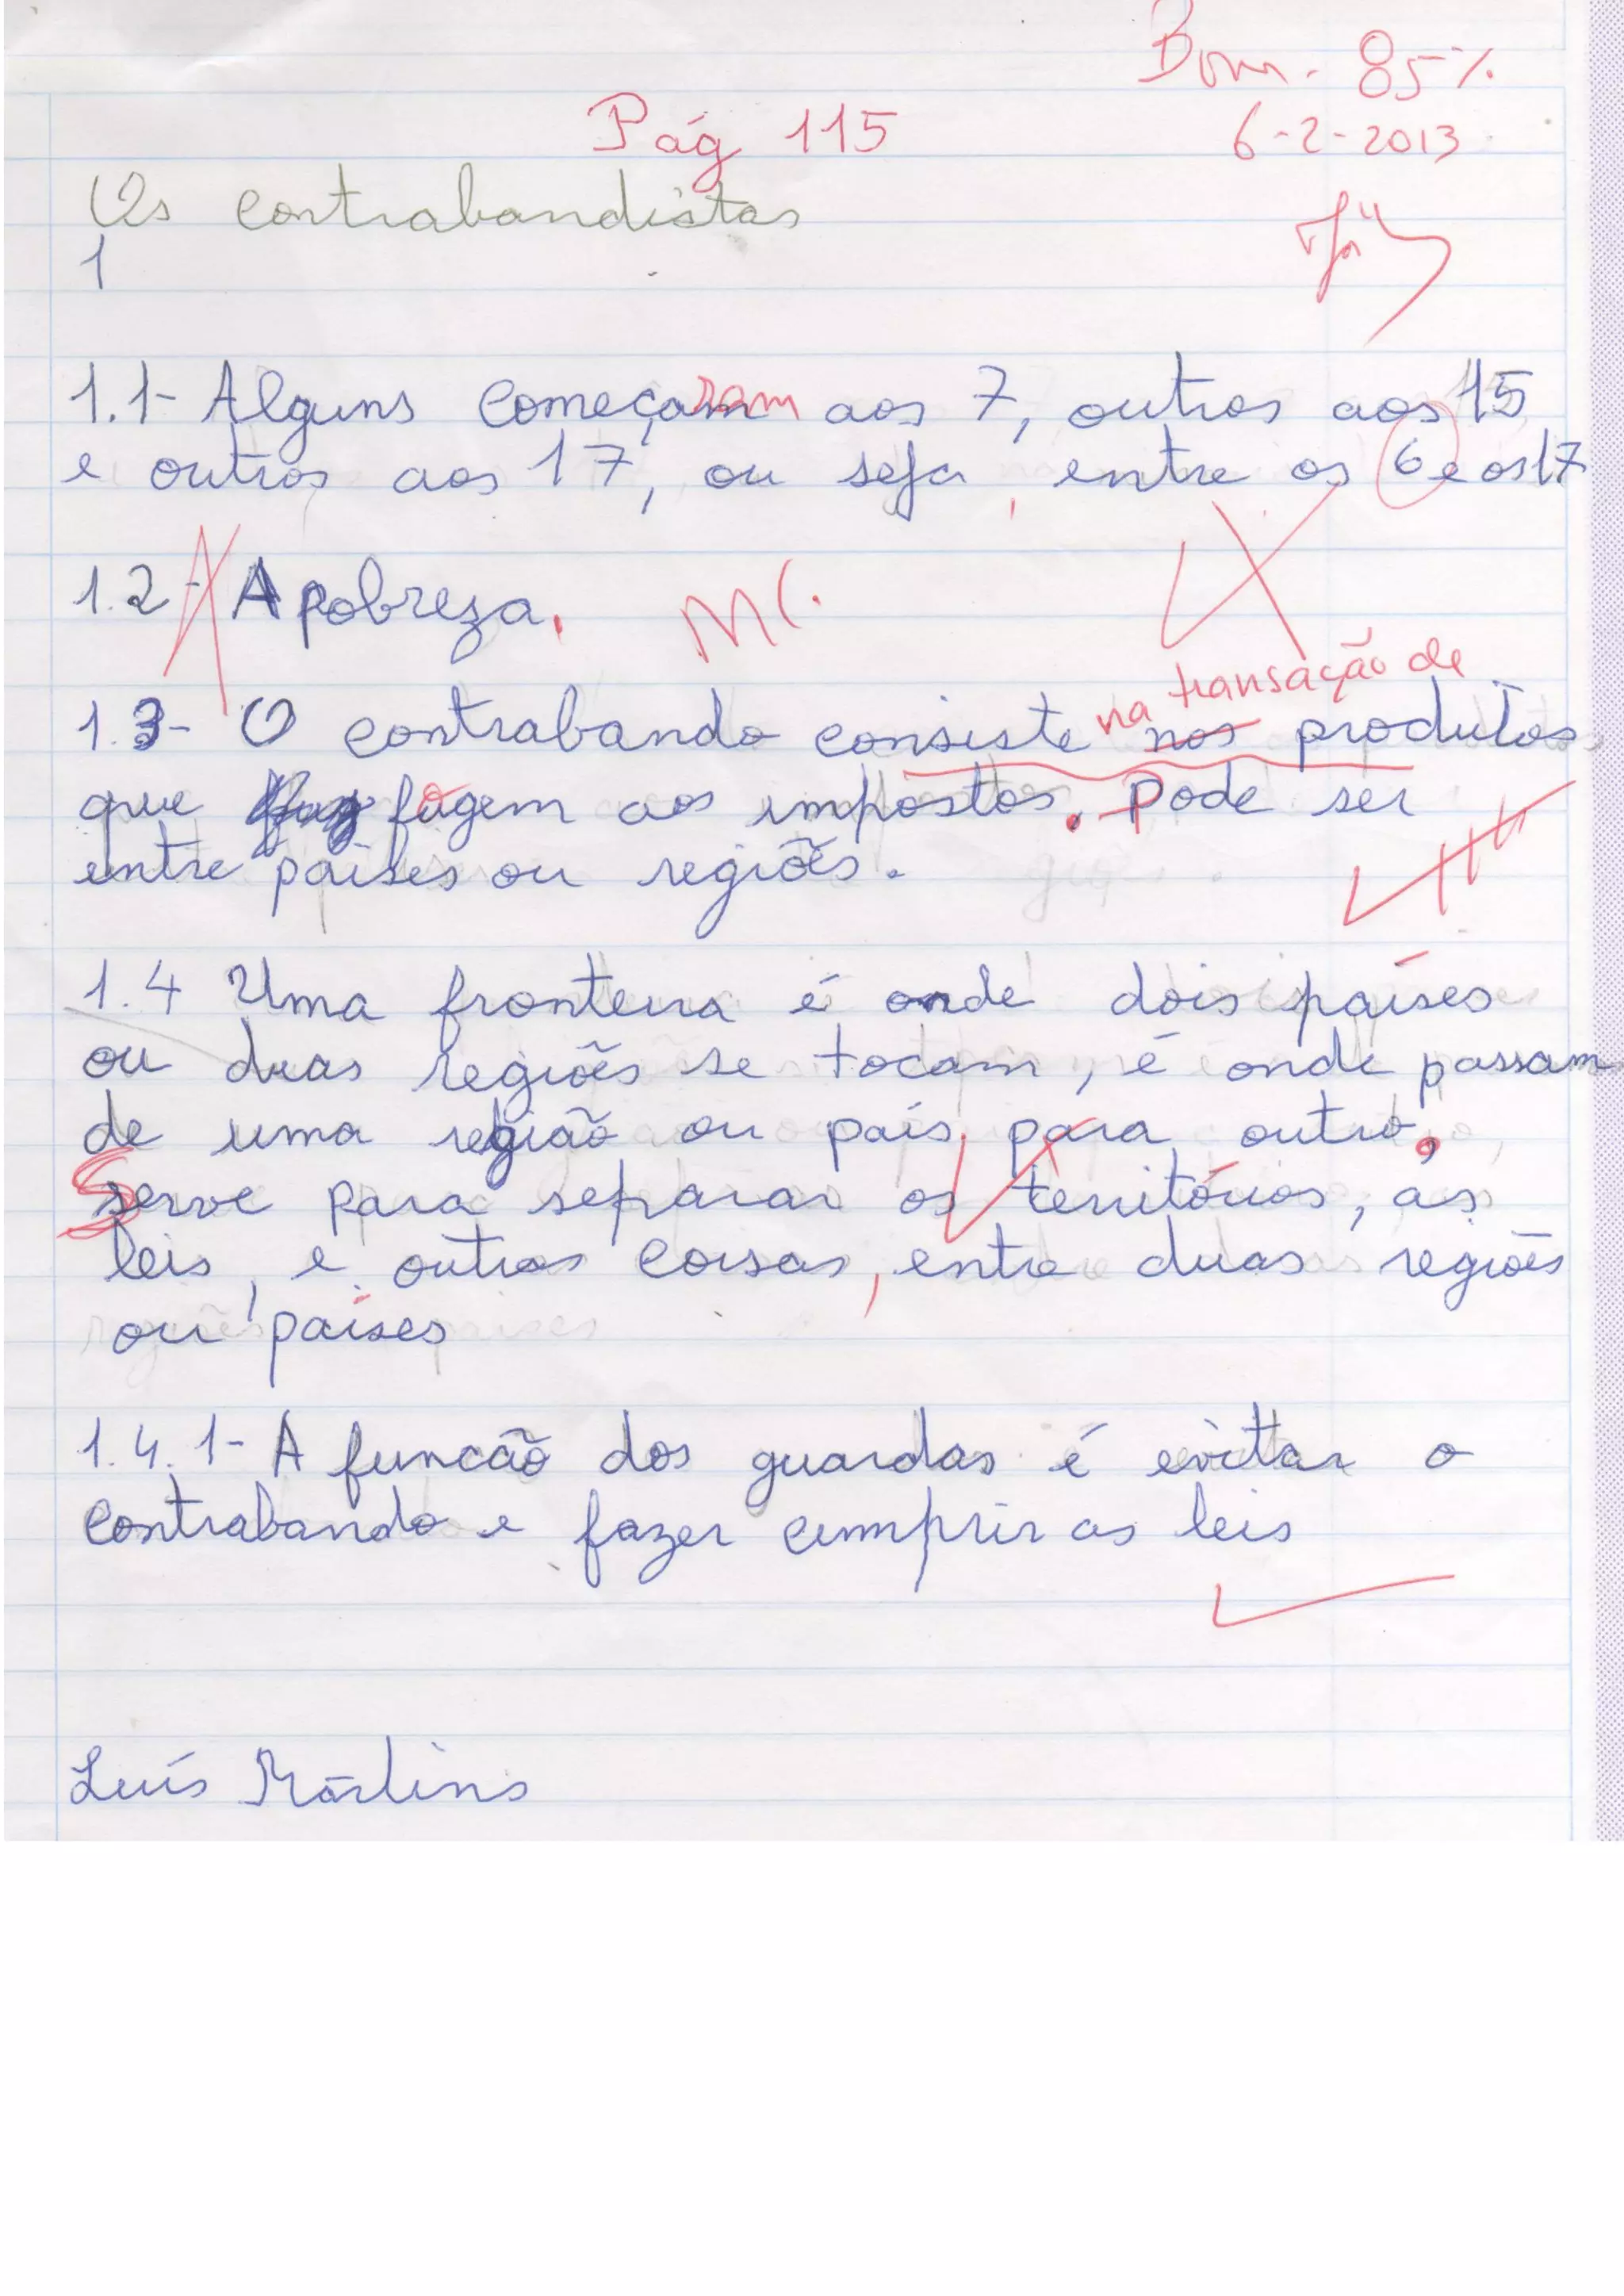 Bom. 85%
Pág 115
6-2-2013
Os contrabandistas
1
1.1- Alguns começaram aos 7, outros aos 15
e outros aos 17, ou seja, entre os 6 e os 17
1.2- A pobreza. MC.
na transação de
1.3- O contrabando consiste nos produtos
que fogem aos impostos. Pode ser
entre países ou regiões.
1.4 Uma fronteira é onde dois países
ou duas regiões se tocam, é onde passam
de uma região ou país, para outro.
Serve para separar os territórios, as
leis, e outras coisas, entre duas regiões
ou países
1.4.1- A funcão dos guardas é evitar o
contrabando e fazer cumprir as leis
Luís Martins